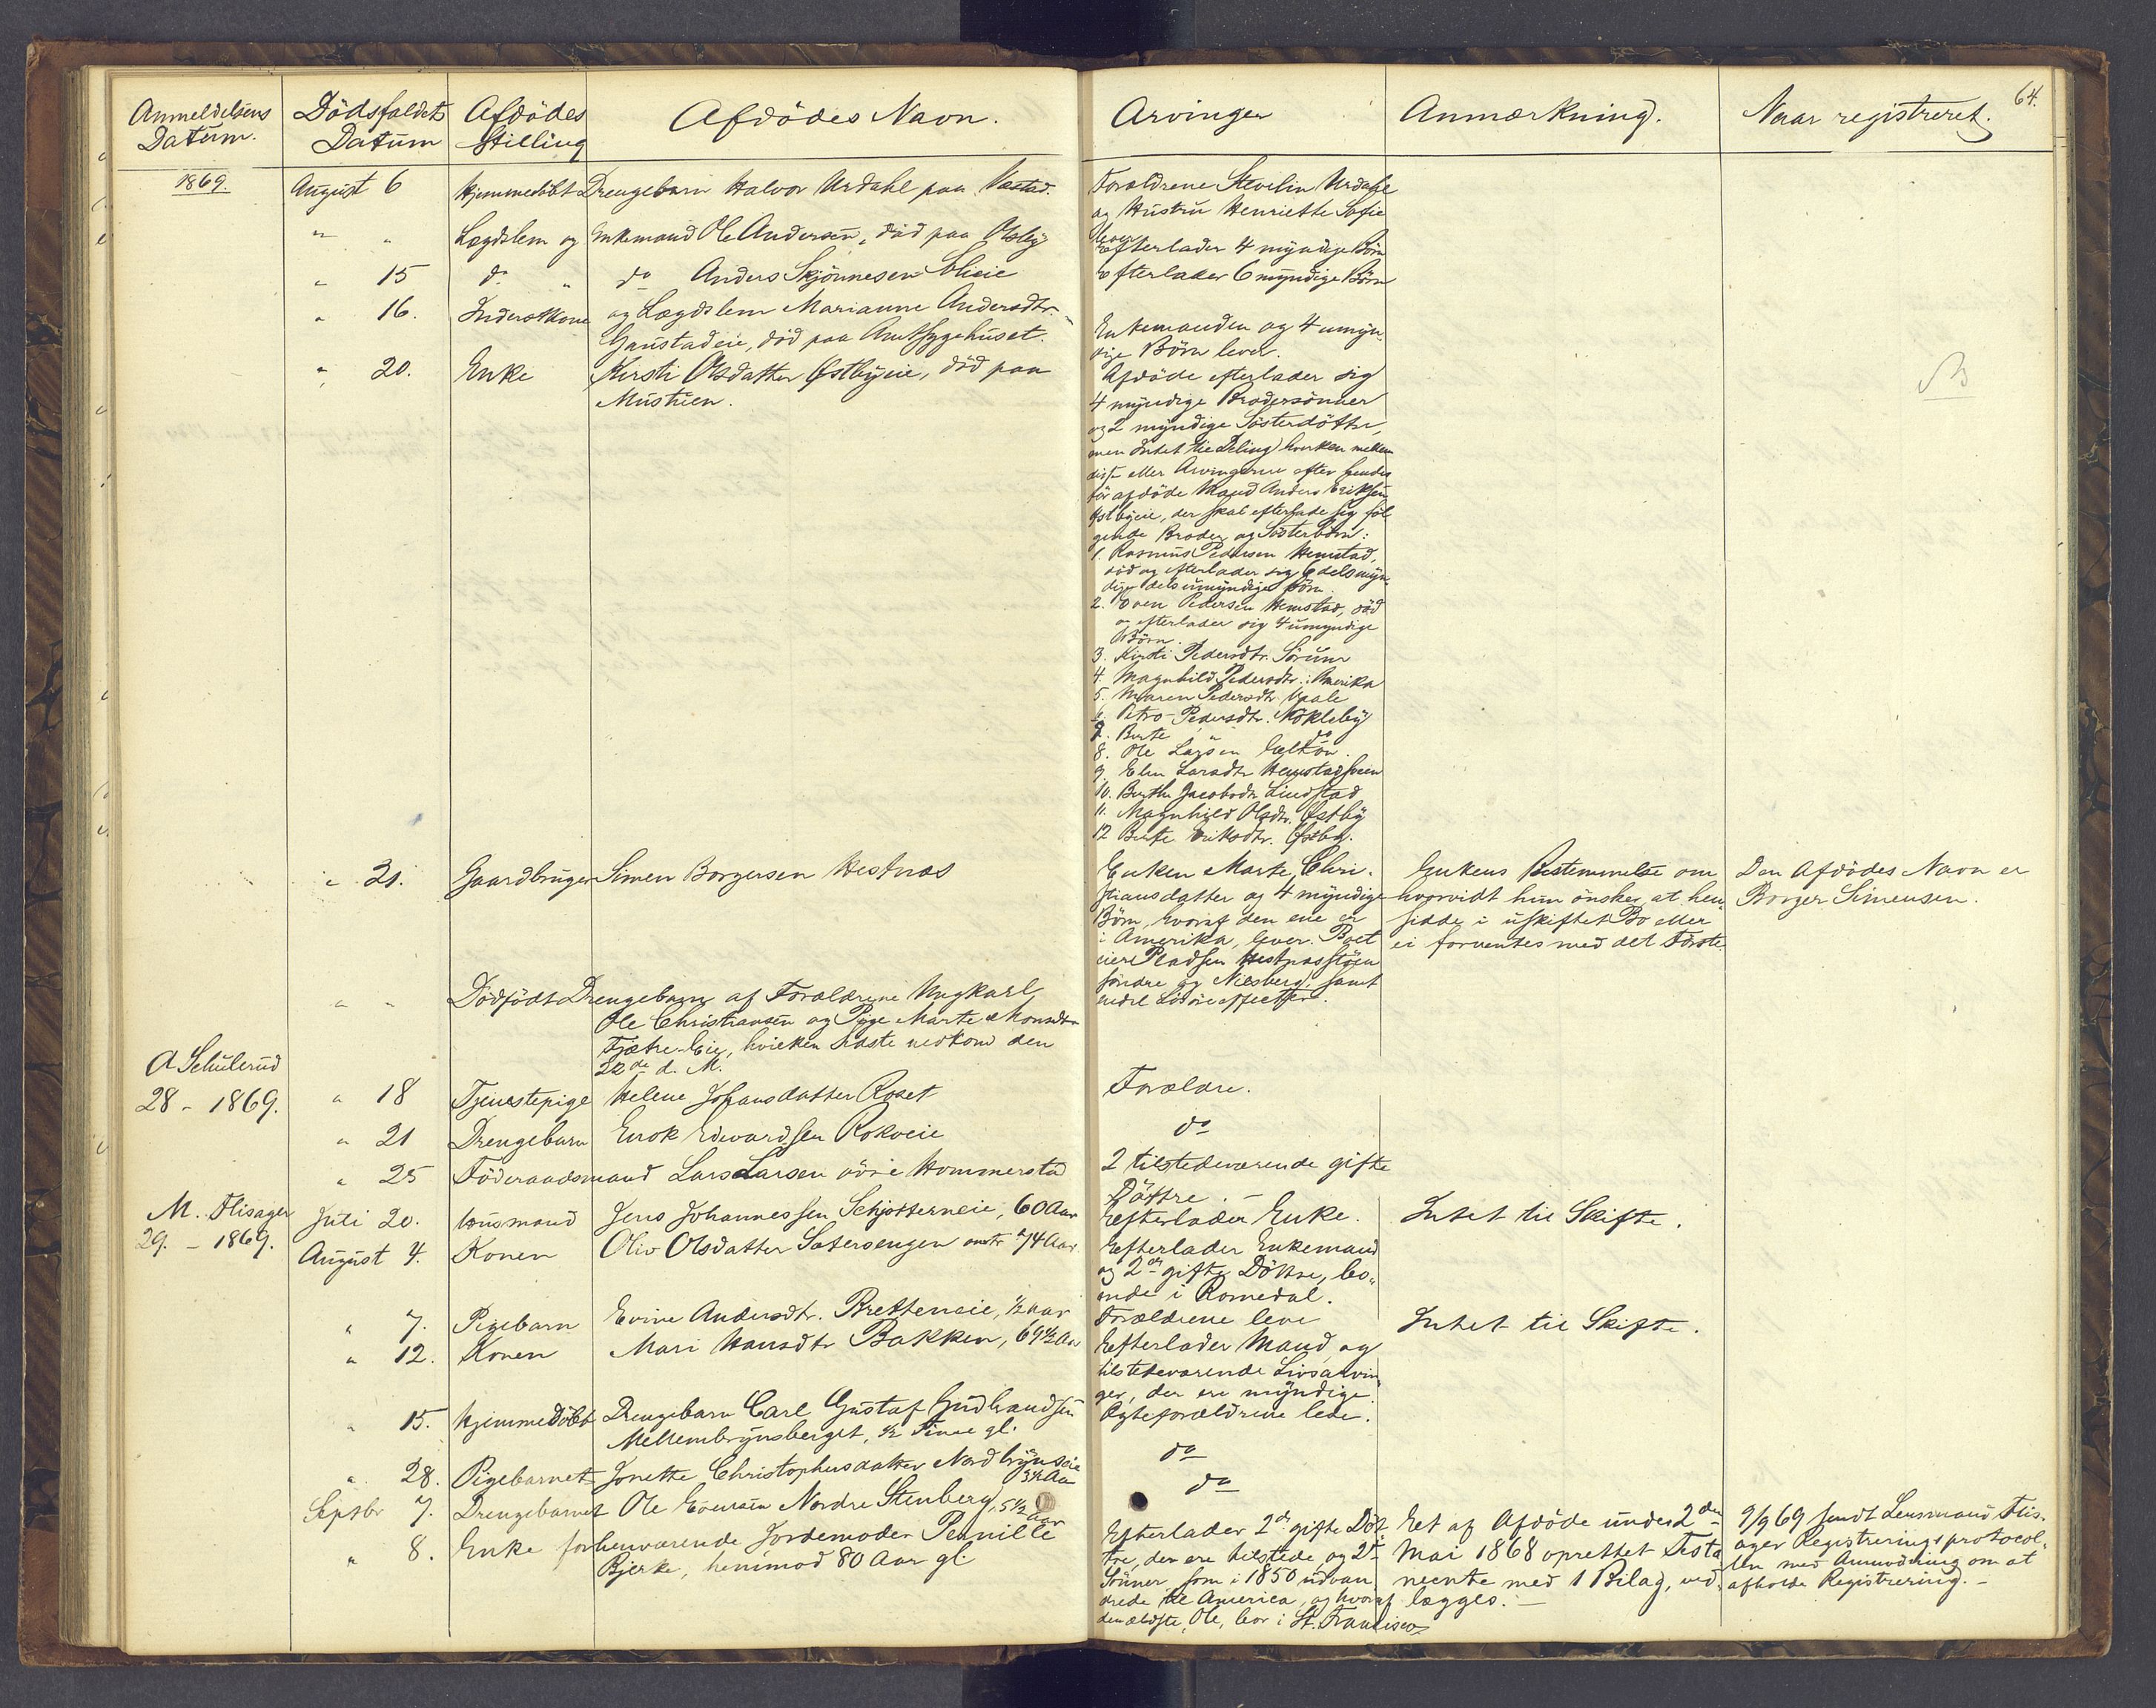 64.
Anmeldelsens Datum.
Dødsfaldets Datum
Afdødes Stilling
Afdødes Navn.
Arvinger
Anmærkning.
Naar registreret.
1869.
August 6 Hjemmedøbt Drengebarn Halvor Urdahl paa
Forældrene Urdahl
og Hustru Henriette Sofie
lever
" " Lægdslem og Enkemand Ole Andersen, død paa Olsby
Efterlader 4 myndige Børn
" 15 do " do Anders Skjønnesen
Efterlader 6 myndige Børn
" 16. Inderstkone og Lægdslem Marianne Andersdtr.
Gaustadeie, død paa Amtssygehuset.
Enkemanden og 4 umyn-
dige Børn lever.
" 20. Enke Kirsti Olsdatter Østbyeie, død paa
Mustuen.
Afdøde efterlader sig
4 myndige Brodersønner
og 2 myndige Søsterdøttre,
men Intet til Deling hverken mellem
disse eller Arvingerne efter hendes
før afdøde Mand Anders Eriksen
Østbyeie, der skal efterlade sig føl
gende Broder og Søsterbørn:
1. Rasmus Pedersen Hemstad,
død og efterlader sig 6 dels myn-
dige dels umyndige Børn.
2. Even Pedersen Hemstad, død
og efterlader sig 4 umyndige
Børn.
3. Kirsti Pedersdtr. Sørum
4. Magnhild Pedersdtr. i Amerika
5. Maren Pedersdtr.
6. Pedersdtr. Nøkleby
7. Berte " do
8. Ole Larsen
9. Elen Larsdtr Hemstadsveen
10. Berthe Jacobsdtr Lindstad
11. Magnhild Olsdtr. Østby
12 Berte Eriksdtr. Østby.
" 21. Gaardbruger Simen Borgersen Hestnæs
Enken Marte Chri-
stiansdatter og 4 myndige
Børn, hvoraf den ene er
i Amerika, lever. Boet
eier Pladsen Hestnæsstøen
søndre og Nilsberg, samt
endel Løsøreeffecter.
Enkens Bestemmelse om
hvorvidt hun ønsker at hen-
sidde i uskiftet Bo eller
ei forventes med det Første
Den Afdødes Navn er
Borger Simensen.
" " Dødfødt Drengebarn af Forældrene Ungkarl
Ole Christiansen og Pige Marte Monsdtr
Tjætre-Eie, hvilken sidste nedkom den
22de d. M.
A Schulerud
28 - 1869.
" 18 Tjenestepige Helene Johansdatter Roset
Forældre.
" 21 Drengebarn Enok Edvardsen Rokoeie
do
" 25 Føderaadsmand Lars Larsen øvre Hommerstad
2 tilstedeværende gifte
Døttre. -
M. Flisager
29. - 1869.
Juli 20. Husmand Jens Johannessen Schjøtterneie, 60 Aar
Efterlader Enke.
Intet til Skifte.
August 4. Konen Oliv Olsdatter Sætersengen omtr 74 Aar.
Efterlader Enkemand
og 2de gifte Døttre, bo-
ende i Romedal.
" 7. Pigebarn Evine Andersdtr. Bretteneie, 1/2 aar
Forældrene leve
Intet til Skifte.
" 12. Konen Mari Hansdtr Bakken, 69 1/2 Aar
Efterlader Mand og
tilstedeværende Livsarvin-
ger, der ere myndige.
" 15. Hjemmedøbt Drengebarn Carl Gustaf Gudbrandsen
Mellembrynsberget, 1/2 Time gl.
Ægteforældrene leve.
" 28. Pigebarnet Jonette Christophersdatter Nordbrynseie
3 1/2 Aar
do
Septbr 7. Drengebarnet Ole Evensen Nordre Stenberg, 5 1/2 Aar
do
" 8. Enke forhenværende Jordemoder Pernille
Bjerke, henimod 80 Aar gl.
Efterlader 2de gifte Døt-
tre, der ere tilstede, og 2de
Sønner som i 1850 udvan-
drede til America, og hvoraf
den ældste, Ole, bor i St. Francisco
Et af Afdøde under 2den
Mai 1868 oprettet Testa-
mente med 1 Bilag, ved-
lægges. -
9/9 69 sendt Lensmand Flis-
ager Registreringsprotocol-
len med Anmodning om at
afholde Registrering. -